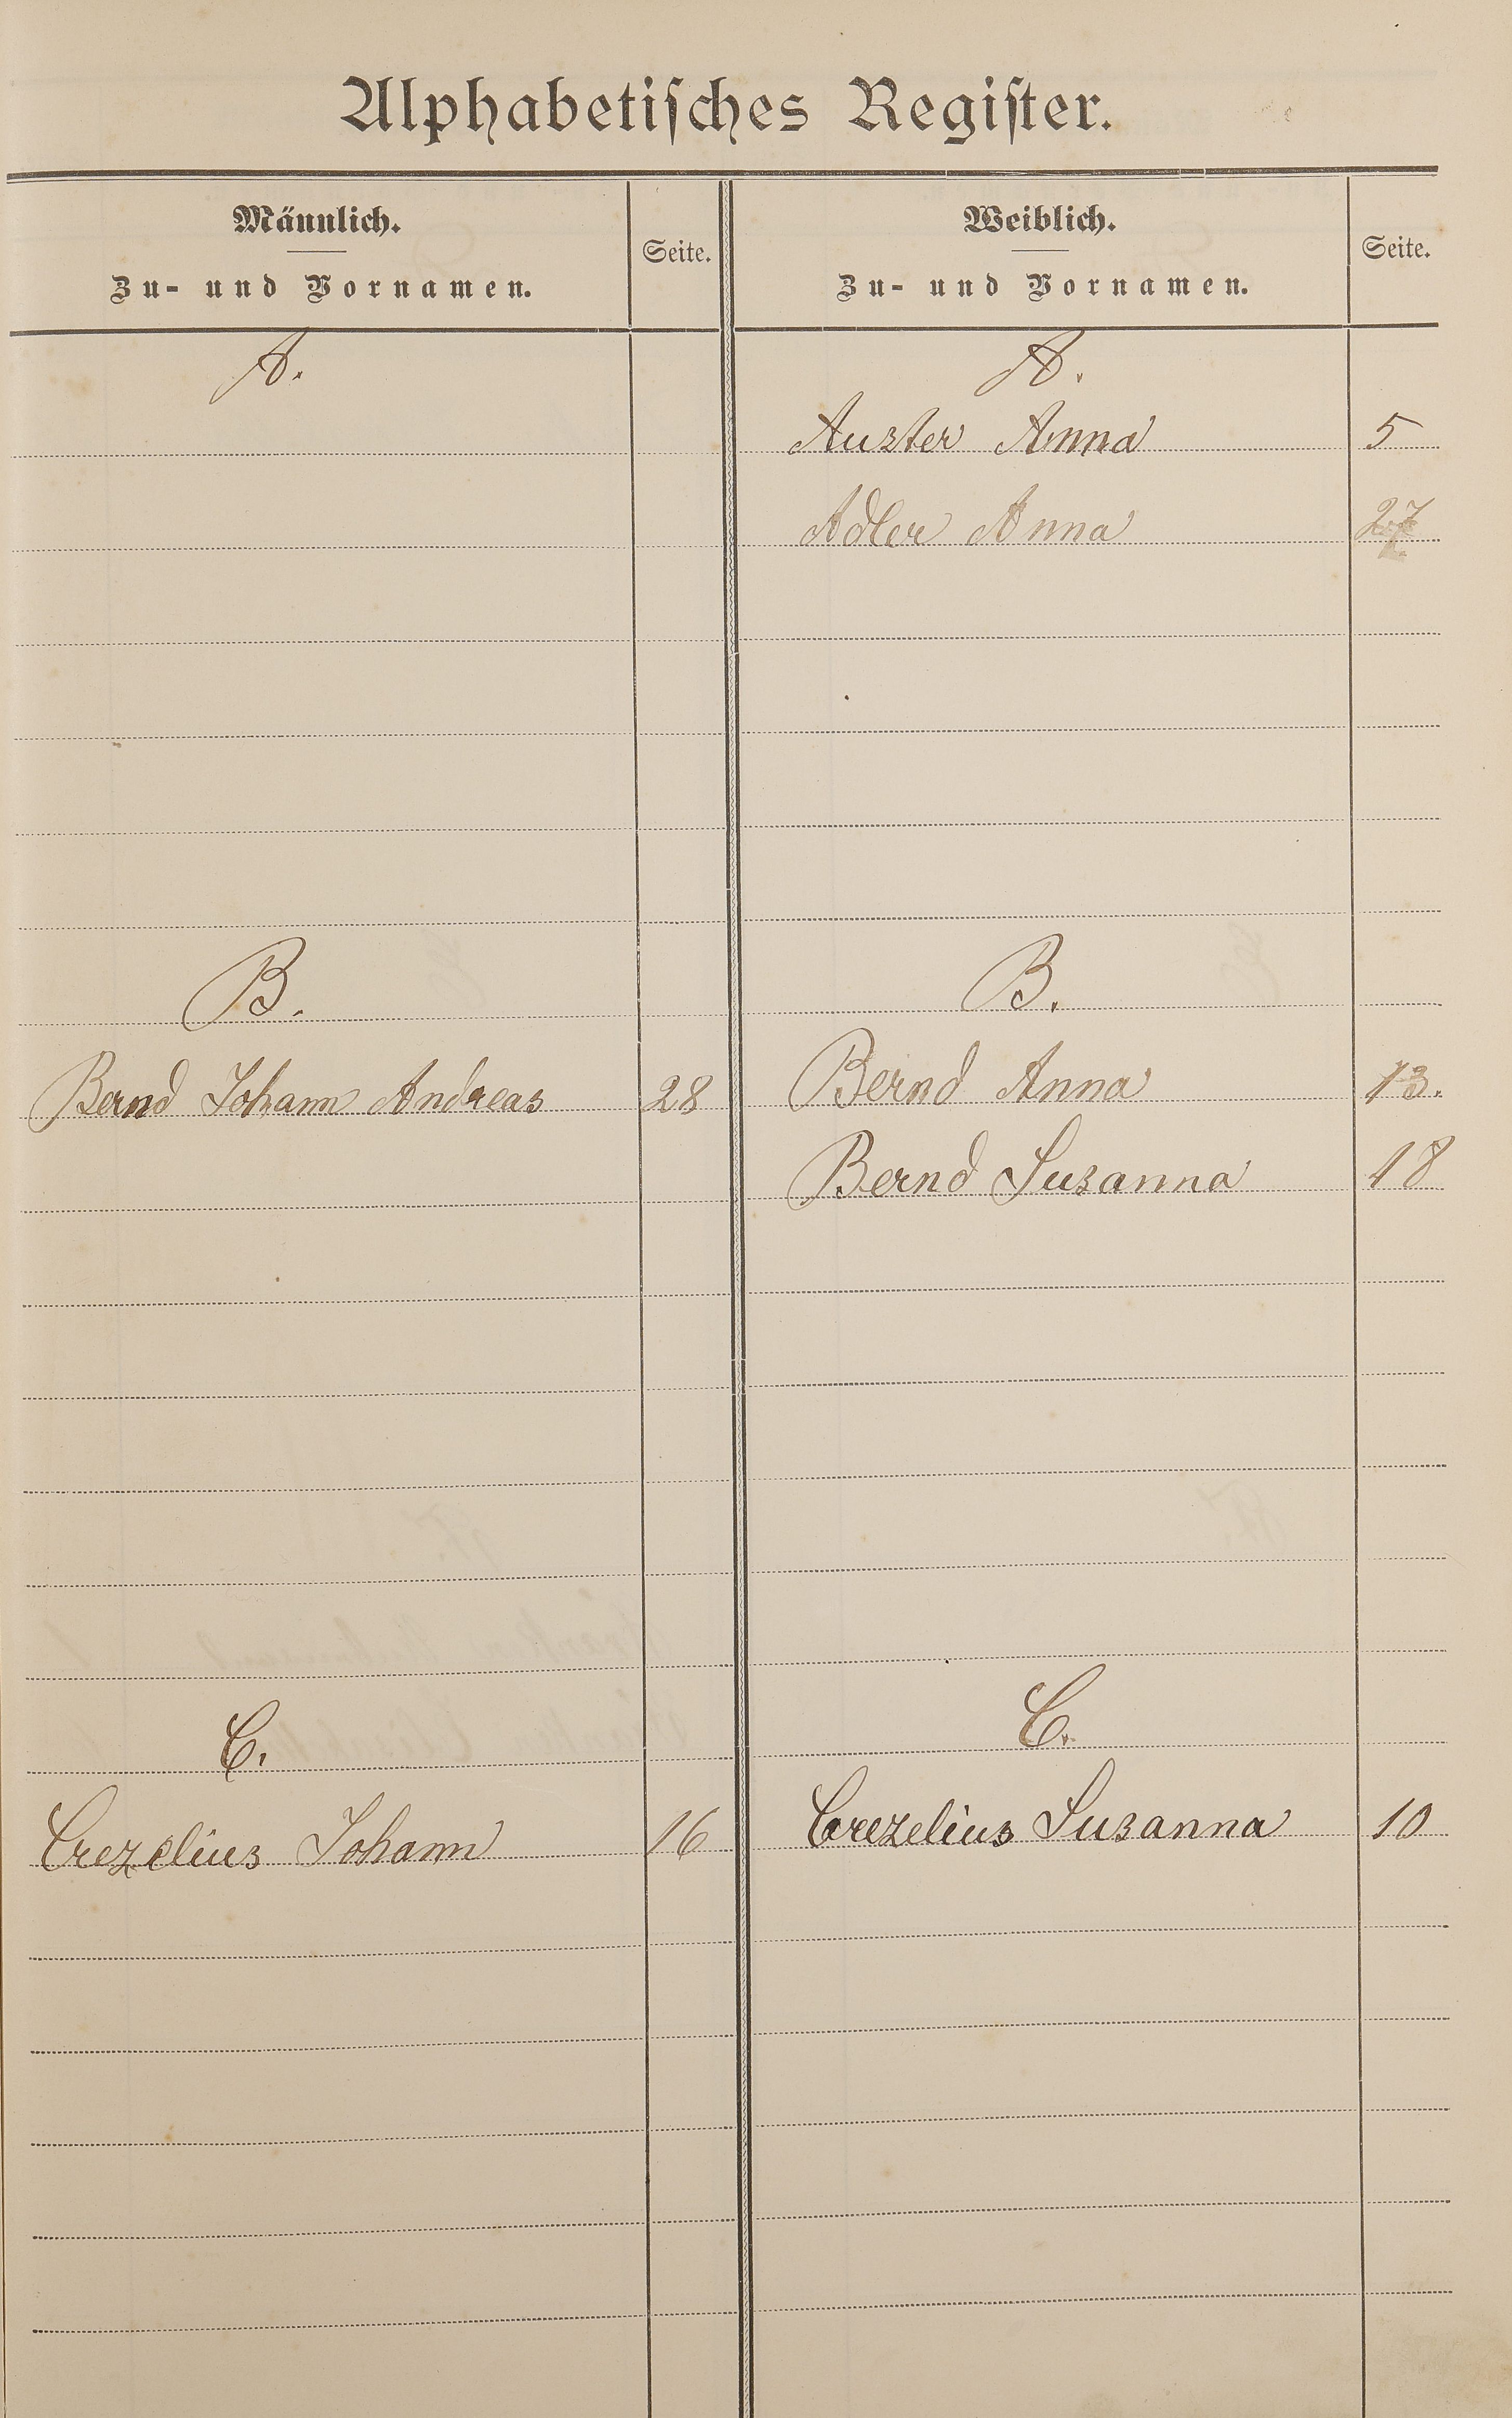 Alphabetiſches Regiſter.
Männlich.
Zu- und Vornamen.
Seite.
Weiblich.
Zu- und Vornamen.
Seite.
A.
A.
Auster Anna 5
Adler Anna 27
B.
B.
Bernd Johann Andreas 28
Bernd Anna 13.
Bernd Susanna 18
C.
C.
Crezelius Johann 16
Crezelius Susanna 10